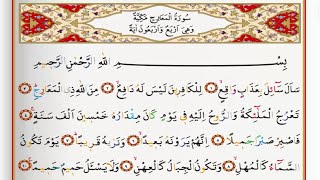 سُورَةُ الْمَعَارِجِ مَكِّيَّةٌ
وَهِيَ اَرْبَعٌ وَاَرْبَعُونَ اٰيَةً
بِسْمِ اللّٰهِ الرَّحْمٰنِ الرَّحِيمِ
سَاَلَ سَٓائِلٌ بِعَذَابٍ وَاقِعٍۙ ﴿١﴾ لِلْكَافِرِينَ لَيْسَ لَهُ دَافِعٌۙ ﴿٢﴾ مِنَ اللّٰهِ ذِي الْمَعَارِجِۜ ﴿٣﴾
تَعْرُجُ الْمَلٰٓئِكَةُ وَالرُّوحُ اِلَيْهِ فِي يَوْمٍ كَانَ مِقْدَارُهُ خَمْسِينَ اَلْفَ سَنَةٍۚ ﴿٤﴾
فَاصْبِرْ صَبْرًا جَمِيلًا ﴿٥﴾ اِنَّهُمْ يَرَوْنَهُ بَعِيدًاۙ ﴿٦﴾ وَنَرٰيهُ قَرِيبًاۜ ﴿٧﴾ يَوْمَ تَكُونُ
السَّمَٓاءُ كَالْمُهْلِۙ ﴿٨﴾ وَتَكُونُ الْجِبَالُ كَالْعِهْنِۙ ﴿٩﴾ وَلَا يَسْـَٔلُ حَمِيمٌ حَمِيمًاۚ ﴿١٠﴾